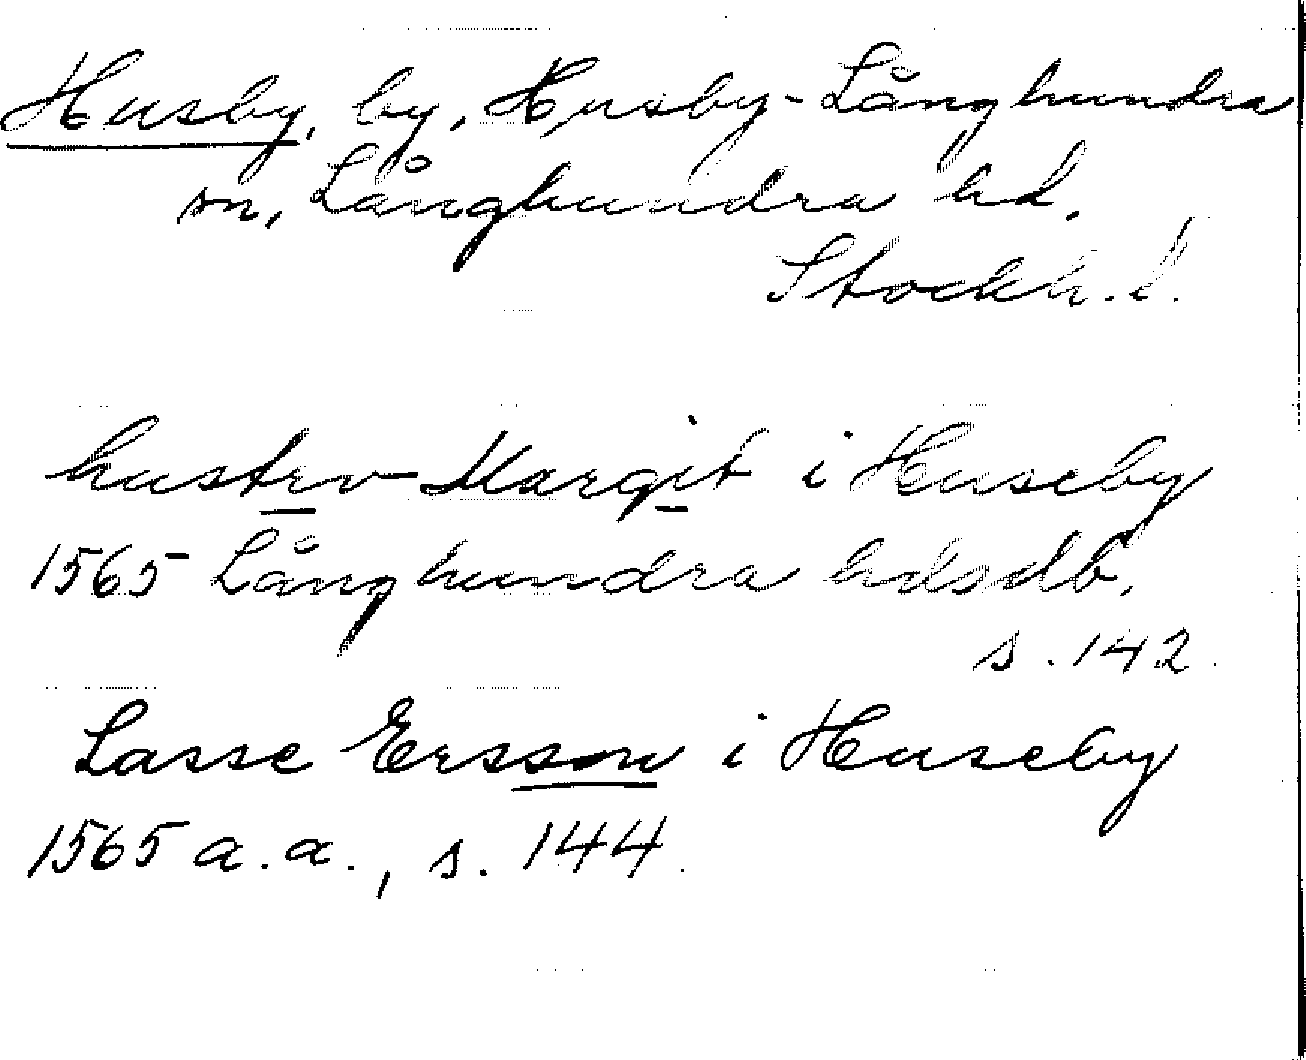 Husby, by, Husby-Långhundra
sn, Långhundra hd.
Stockh. l.
hustrv Margit i Huseby
1565 Långhundra hdsdb.
s. 142.
Lasse Ersson i Huseby
1565 a.a., s. 144.